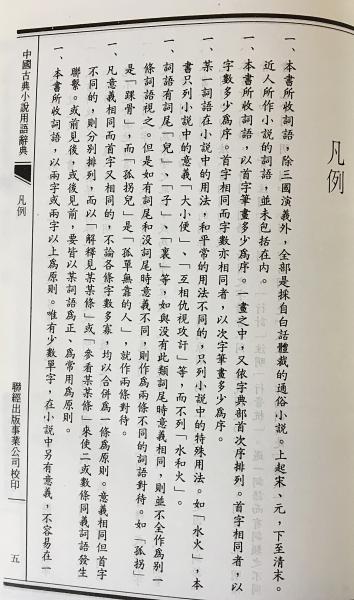 凡例
一、本書所收詞語，除三國演義外，全部是採自白話體裁的通俗小說。上起宋、元，下至清末。
近人所作小說的詞語，並未包括在內。
一、本書所收詞語，以首字筆畫多少爲序。一畫之中，又依字典部首次序排列。首字相同者，以
字數多少爲序。首字相同而字數亦相同者，以次字筆畫多少爲序。
一、某一詞語在小說中的用法，和平常的用法不同的，只列小說中的特殊用法。如「水火」，本
書只列小說中的意義「大小便」、「互相仇視攻訐」等，而不列「水和火」。
一、詞語有詞尾「兒」、「子」、「裏」等，如與没有此類詞尾時意義相同，則並不全作爲別一
條詞語視之。但是如有詞尾和没詞尾時意義不同，則作爲兩條不同的詞語對待。如「孤拐」
是「踝骨」，而「孤拐兒」是「孤單無靠的人」，就作兩條對待。
一、凡意義相同而首字又相同的，不論各條字數多寡，均以合併爲一條爲原則。意義相同但首字
不同的，則分別排列，而以「解釋見某某條」或「參看某某條」來使二或數條同義詞語發生
聯繫。或前見後，或後見前，要皆以某詞語爲正、爲常用爲原則。
一、本書所收詞語，以兩字或兩字以上爲原則。唯有少數單字，在小說中另有意義，不容易在一
中國古典小說用語辭典
凡例
聯經出版事業公司校印
五